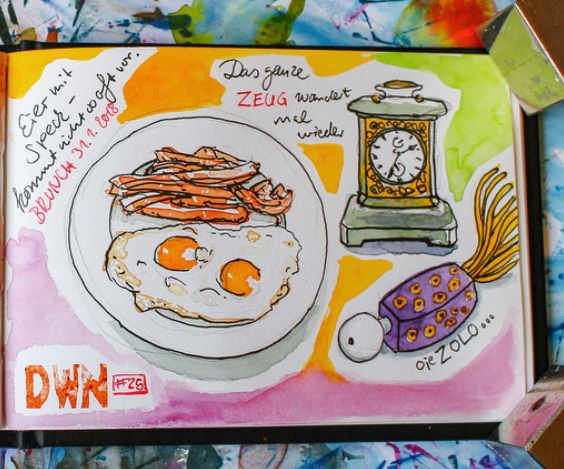 Eier mit
Speck -
kommt nicht so oft vor.
BRUNCH 31.1.2018
Das ganze
ZEUG wandert
mal
wieder
oje ZOLO...
DWN #25